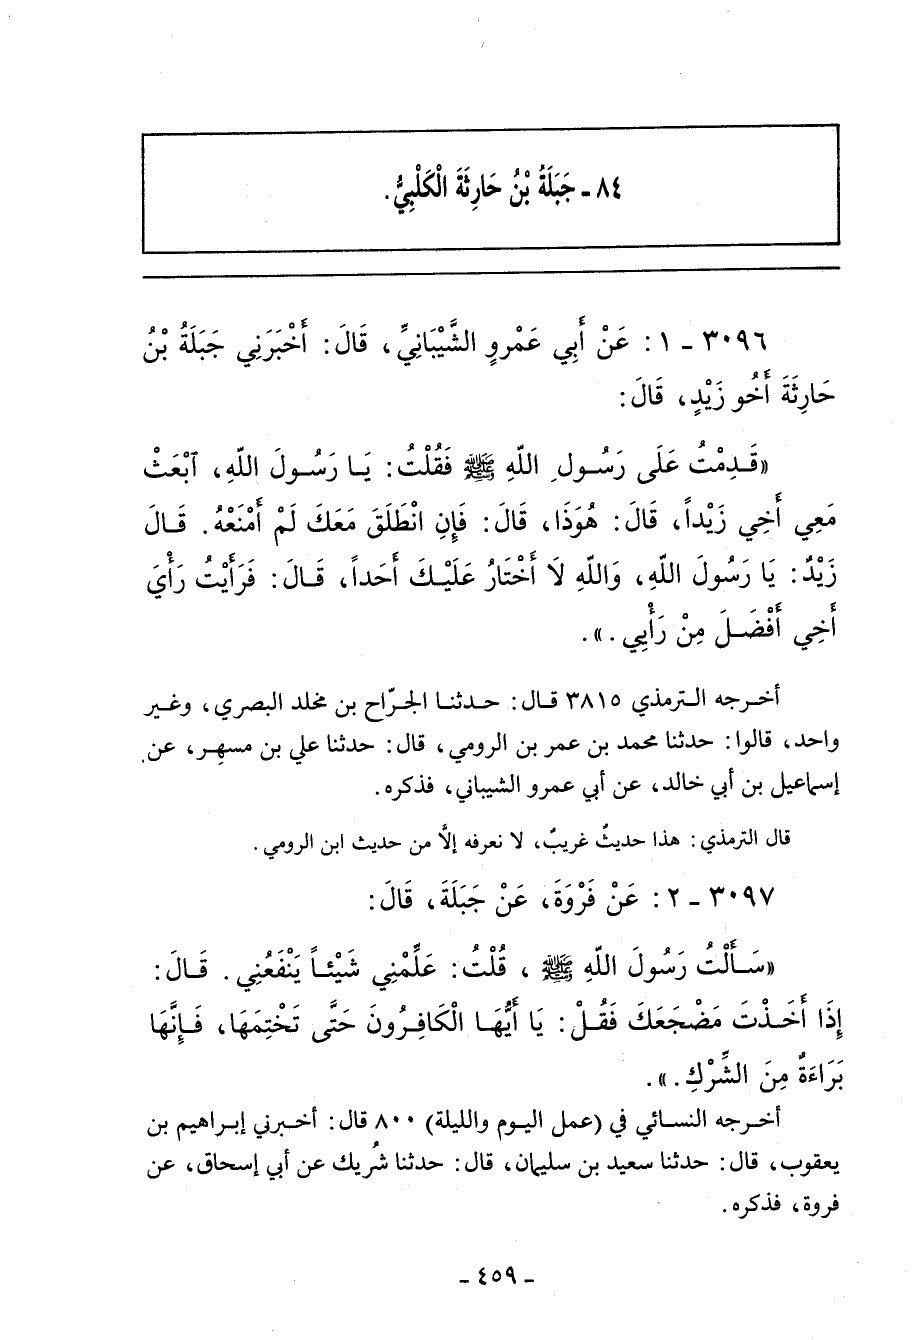 ٨٤ - جَبَلَةُ بْنُ حَارِثَةَ الْكَلْبِيُّ.
٣٠٩٦ - ١ : عَنْ أَبِي عَمْرٍو الشَّيْبَانِيِّ، قَالَ: أَخْبَرَنِي جَبَلَةُ بْنُ
حَارِثَةَ أَخُو زَيْدٍ، قَالَ:
«قَدِمْتُ عَلَى رَسُولِ اللّهِ ﷺ فَقُلْتُ: يَا رَسُولَ اللّهِ، ٱبْعَثْ
مَعِي أَخِي زَيْداً، قَالَ: هُوَذَا، قَالَ: فَإِنِ انْطَلَقَ مَعَكَ لَمْ أَمْنَعْهُ. قَالَ
زَيْدٌ: يَا رَسُولَ اللّهِ، وَاللّهِ لَا أَخْتَارُ عَلَيْكَ أَحَداً، قَالَ: فَرَأَيْتُ رَأْيَ
أَخِي أَفْضَلَ مِنْ رَأْيِي.».
أخرجه الترمذي ٣٨١٥ قال: حدثنا الجرّاح بن مخلد البصري، وغير
واحد، قالوا: حدثنا محمد بن عمر بن الرومي، قال: حدثنا علي بن مسهِر، عن
إسماعيل بن أبي خالد، عن أبي عمرو الشيباني، فذكره.
قال الترمذي: هذا حديثٌ غريبٌ، لا نعرفه إلَّا من حديث ابن الرومي.
٣٠٩٧ - ٢ : عَنْ فَرْوَةَ، عَنْ جَبَلَةَ، قَالَ:
«سَأَلْتُ رَسُولَ اللّهِ ﷺ، قُلْتُ: عَلِّمْنِي شَيْئاً يَنْفَعُنِي. قَالَ:
إِذَا أَخَذْتَ مَضْجَعَكَ فَقُلْ: يَا أَيُّهَا الْكَافِرُونَ حَتَّى تَخْتِمَهَا، فَإِنَّهَا
بَرَاءَةٌ مِنَ الشِّرْكِ.».
أخرجه النسائي في (عمل اليوم والليلة) ٨٠٠ قال: أخبرني إبراهيم بن
يعقوب، قال: حدثنا سعيد بن سليمان، قال: حدثنا شُريك عن أبي إسحاق، عن
فروة، فذكره.
- ٤٥٩ -